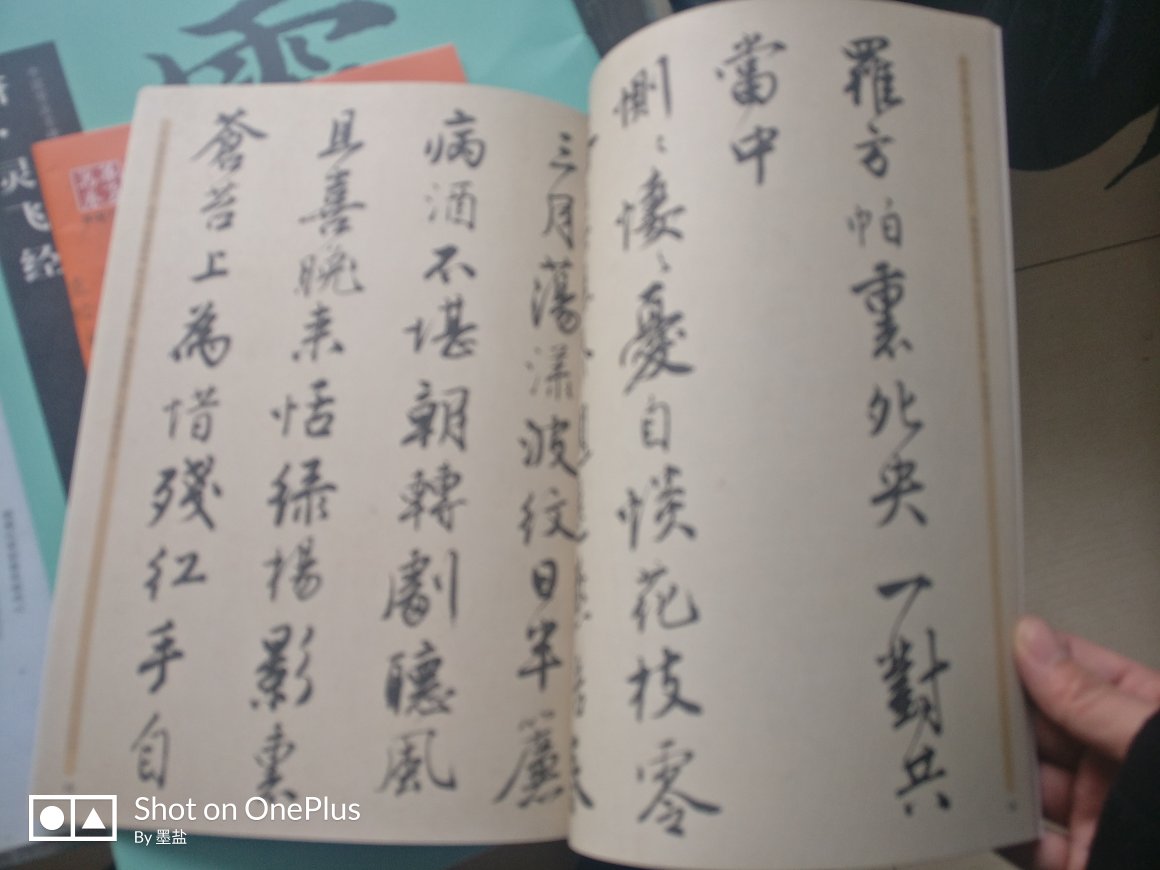 羅方帕裏夗央一對共
當中
惻〻悽〻憂自惔花枝零
三月蕩漾波紋日半簾
病酒不堪朝轉劇聽風
且喜晚来恬緑楊影裏
蒼苔上為惜殘红手自
灵飞经
Shot on OnePlus
By 墨盐